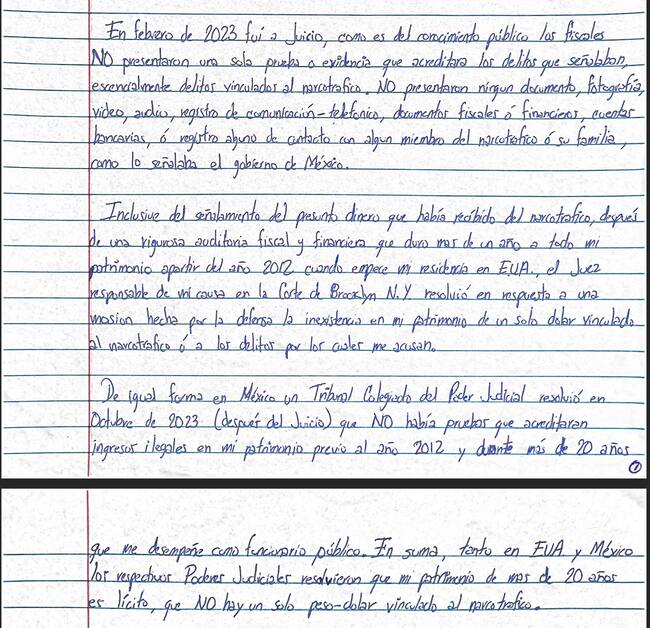 En febrero de 2023 fui a Juicio, como es del conocimiento público los fiscales
NO presentaron una sola prueba o evidencia que acreditara los delitos que señalaban,
escencialmente delitos vinculados al narcotrafico. NO presentaron ningun documento, fotografía,
video, audio, registro de comunicación-telefonico, documentos fiscales ó financieros, cuentas
bancarias, ó registro alguno de contacto con algun miembro del narcotrafico ó su familia,
como lo señalaba el gobierno de México.
Inclusive del señalamiento del presunto dinero que había recibido del narcotrafico, después
de una rigurosa auditoria fiscal y financiera que duro mas de un año a todo mi
patrimonio apartir del año 2012 cuando empece mi residencia en EUA., el Juez
responsable de mi causa en la Corte de Brooklyn N.Y. resolvió en respuesta a una
mosion hecha por la defensa la inexistencia en mi patrimonio de un solo dolar vinculado
al narcotrafico ó a los delitos por los cuales me acusan.
De igual forma en México un Tribunal Colegiado del Poder Judicial resolvió en
Octubre de 2023 (después del Juicio) que NO había pruebas que acreditaran
ingresos ilegales en mi patrimonio previo al año 2012 y durante más de 20 años
1
que me desempeñe como funcionario público. En suma, tanto en EUA y México
los respectivos Poderes Judiciales resolvieron que mi patrimonio de mas de 20 años
es lícito, que NO hay un solo peso-dolar vinculado al narcotrafico.